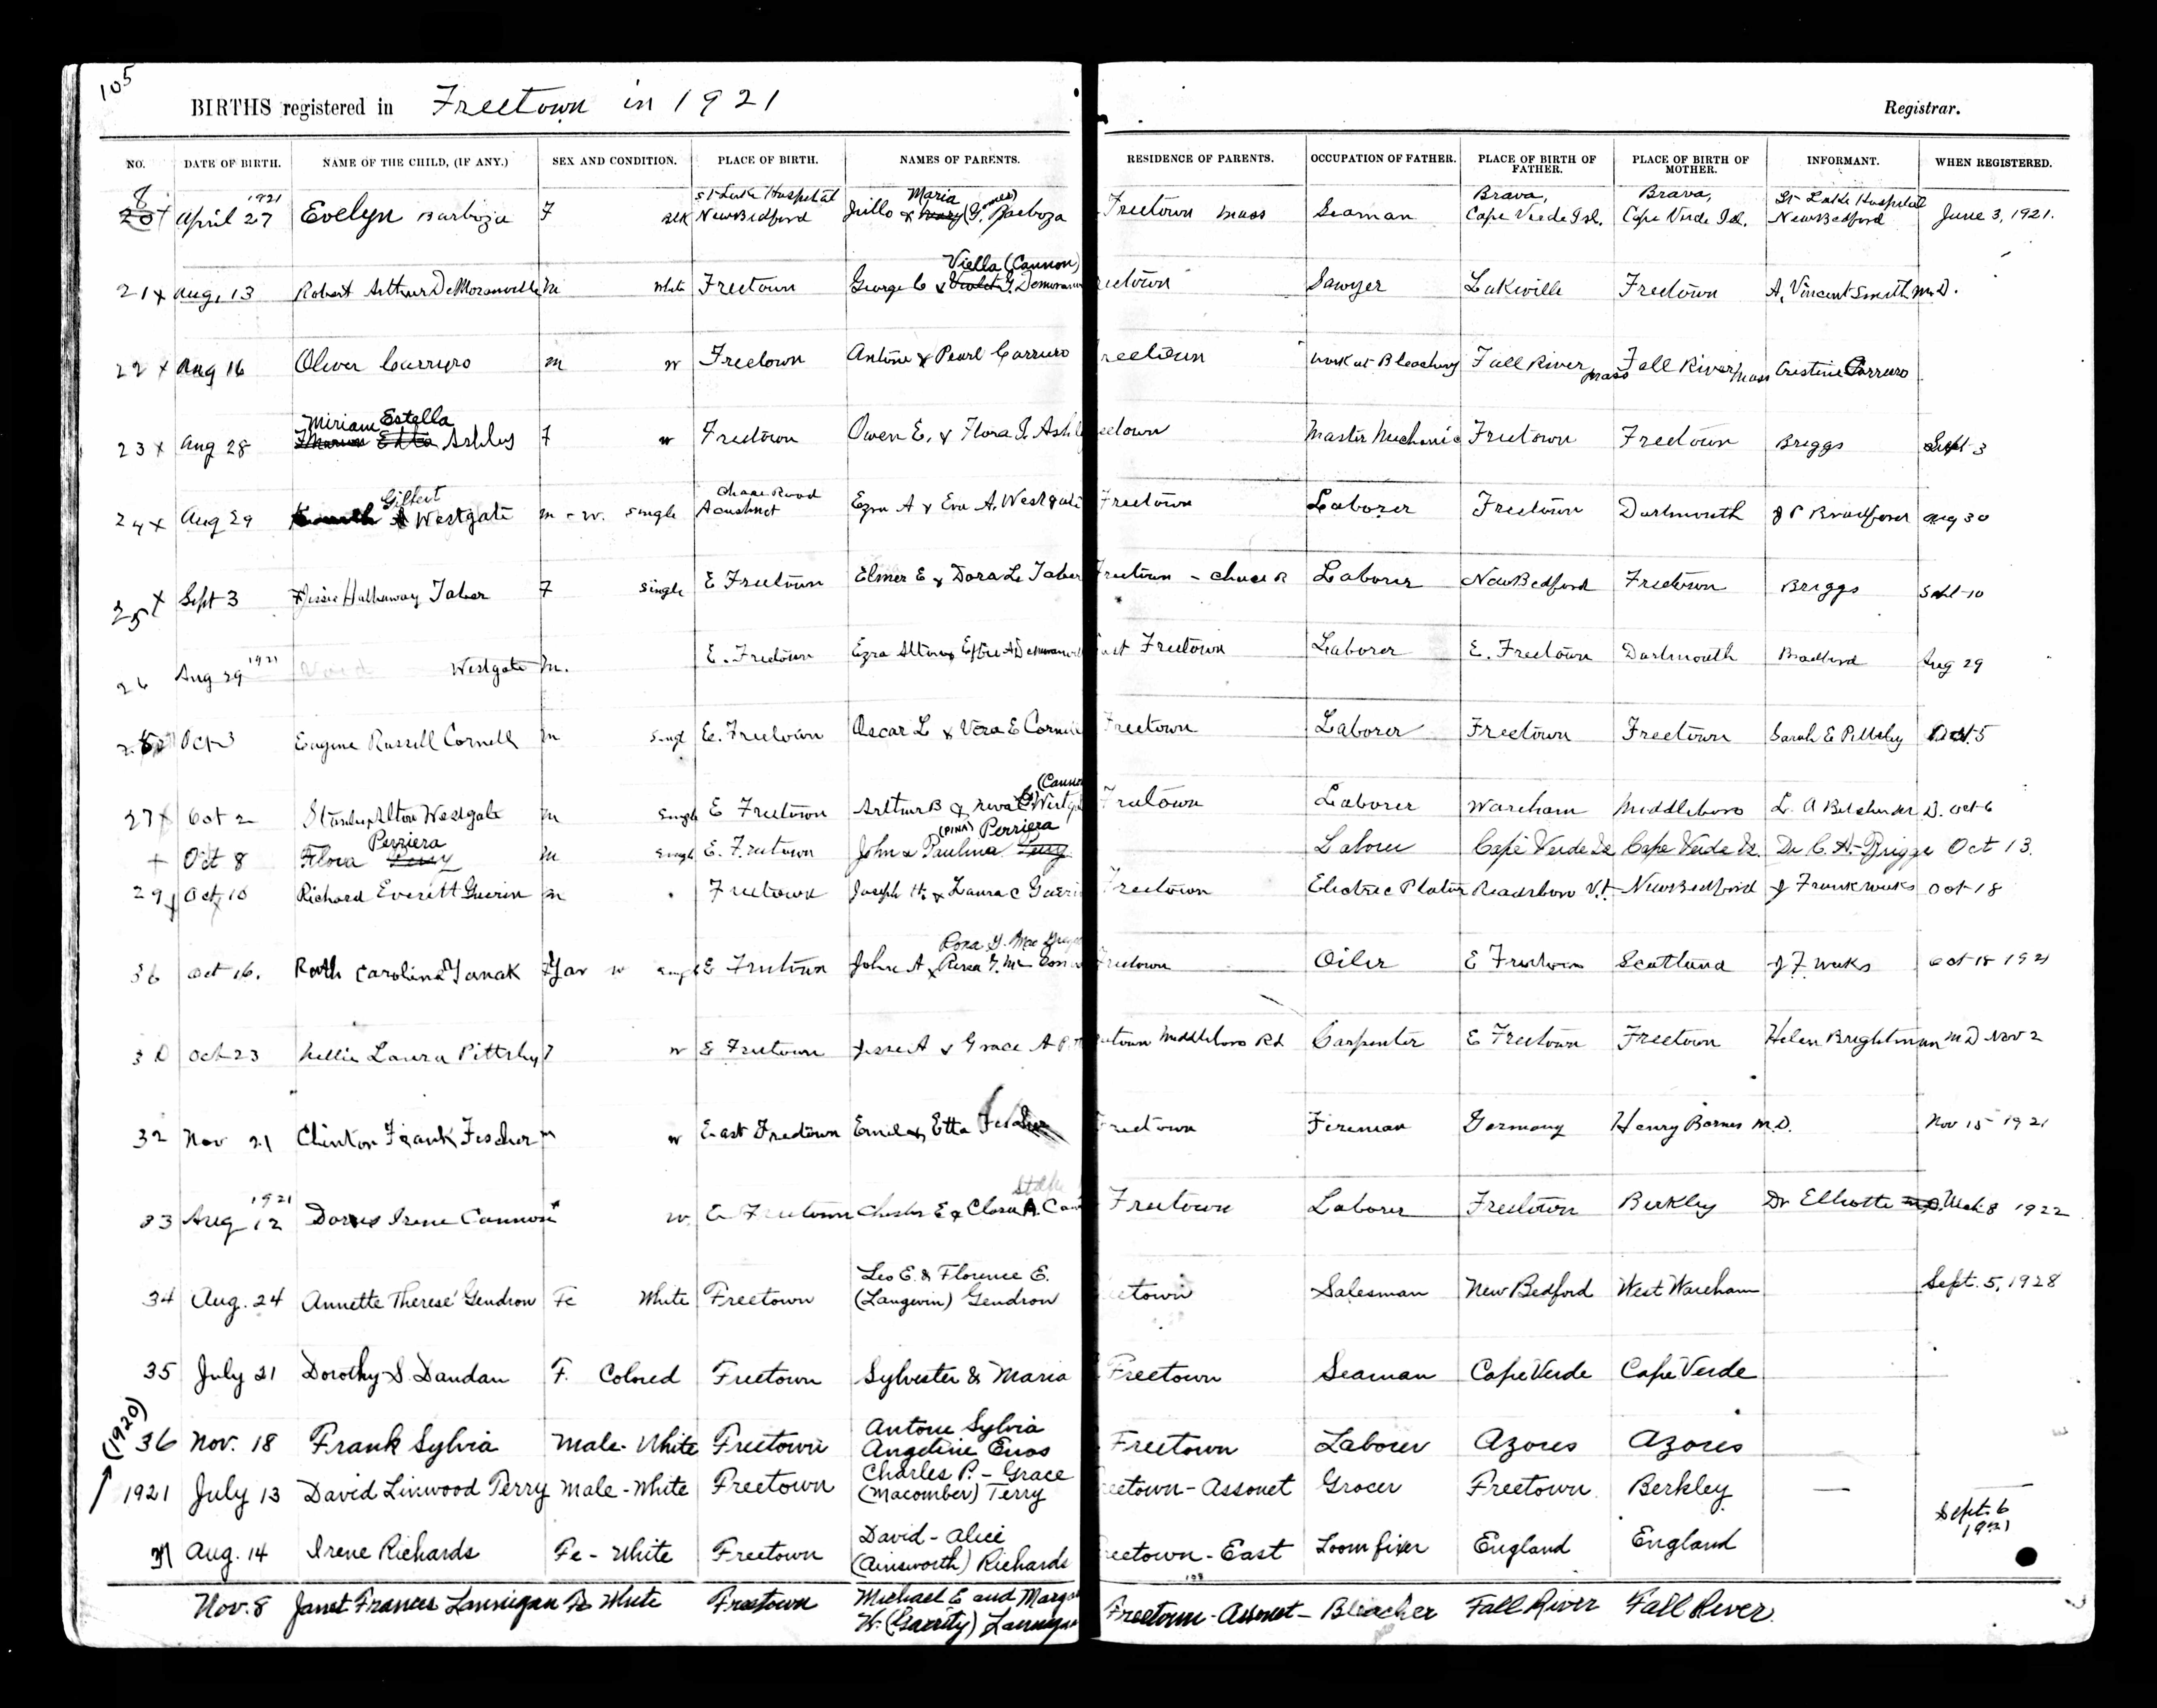 105
BIRTHS registered in Freetown in 1921 Registrar.
NO. DATE OF BIRTH. NAME OF THE CHILD, (IF ANY.) SEX AND CONDITION. PLACE OF BIRTH. NAMES OF PARENTS. RESIDENCE OF PARENTS. OCCUPATION OF FATHER. PLACE OF BIRTH OF FATHER. PLACE OF BIRTH OF MOTHER. INFORMANT. WHEN REGISTERED.
8 1921 St Luke Hospital Maria Brava, Brava, St Luke Hospital
20 April 27 Evelyn Barboza F Blk New Bedford Julio & (Gomes) Barboza Freetown Mass Seaman Cape Verde Isl. Cape Verde Isl. New Bedford June 3, 1921.
Viella (Cannon)
21 x Aug. 13 Robert Arthur DeMoranville M White Freetown George C & Violet G. Demoran reetown Sawyer Lakeville Freetown A. Vincent Smith M.D.
22 x Aug 16 Oliver Carreiro M W Freetown Antone & Pearl Carreiro reetown Work at Bleachery Fall River Mass Fall River Mass Cristine Carreiro
Miriam Estella
23 x Aug 28 Marion Etta Ashley F W Freetown Owen E. & Flora I. Ashl eetown Master Mechanic Freetown Freetown Briggs Sept 3
Gilbert Chace Road
24 x Aug 29 Kenneth Westgate M - W. Single Acushnet Ezra A & Eva A. Westgate Freetown Laborer Freetown Dartmouth Bradford Aug 30
25 x Sept 3 Jessie Hathaway Taber F Single E Freetown Elmer E & Dora L. Taber Freetown - Chace R Laborer New Bedford Freetown Briggs Sept 10
26 Aug 29 1921 Void Westgate M. E. Freetown Ezra Alton & Freetown Laborer E. Freetown Dartmouth Bradford Aug 29
Oct 3 Eugene Russell Cornell M Singl E. Freetown Oscar L & Vera E Cornell Freetown Laborer Freetown Freetown Sarah E Pittsley Oct. 5
(Canno
27 x Oct 2 Stanley Alton Westgate M Single E Freetown Arthur B & Reva Westg Freetown Laborer Wareham Middleboro L. A M D. Oct 6
Perriera (PINA) Perriera
+ Oct 8 Flora Perry M Singl E. Freetown John & Paulina Perry Laborer Cape Verde Is Cape Verde Is. Dr C. A. Briggs Oct 13.
29 Oct 10 Richard Everett Guerin M Freetown Joseph H. & Laura C Gueri Freetown Electric Plater Readsboro Vt. New Bedford J Frank Weeks Oct 18
Rona G. Mac
36 Oct 16. Ruth Caroline Yanak W Singl E Freetown John A & reetown Oiler E Freetown Scotland J F Weeks Oct 18 1921
30 Oct 23 Nellie Laura Pittsley F W E Freetown Jesse A & Grace A Pitt Middleboro Rd Carpenter E Freetown Freetown Helen Brightman MD Nov 2
32 Nov 21 Clinton Frank Fischer M W East Freetown Emil & Etta Fischer reetown Fireman Germany Henry Barnes M.D. Nov 15 1921
1921
33 Aug 12 Dorris Irene Cannon W E Freetown Chester E & Clara A. Can Freetown Laborer Freetown Berkley Dr Elliotte Mch 8 1922
Leo E. & Florence E.
34 Aug. 24 Annette Therese Gendron Fe White Freetown (Langevin) Gendron etown Salesman New Bedford West Wareham Sept. 5, 1928
35 July 21 Dorothy S. Dandan F. Colored Freetown Sylvester & Maria Freetown Seaman Cape Verde Cape Verde
(1920) Antone Sylvia
36 Nov. 18 Frank Sylvia Male - White Freetown Angeline Enos Freetown Laborer Azores Azores —
Charles P. - Grace
1921 July 13 David Linwood Terry Male - White Freetown (Macomber) Terry eetown - Assonet Grocer Freetown Berkley —
David - Alice Sept. 6 1921
37 Aug. 14 Irene Richards Fe - White Freetown (Ainsworth) Richards eetown - East Loom fixer England England
108
Michael E and Marga
Nov. 8 Janet Frances Lannigan Fe White Freetown W. (Garrity) Lanniga Freetown - Assonet - Bleacher Fall River Fall River.